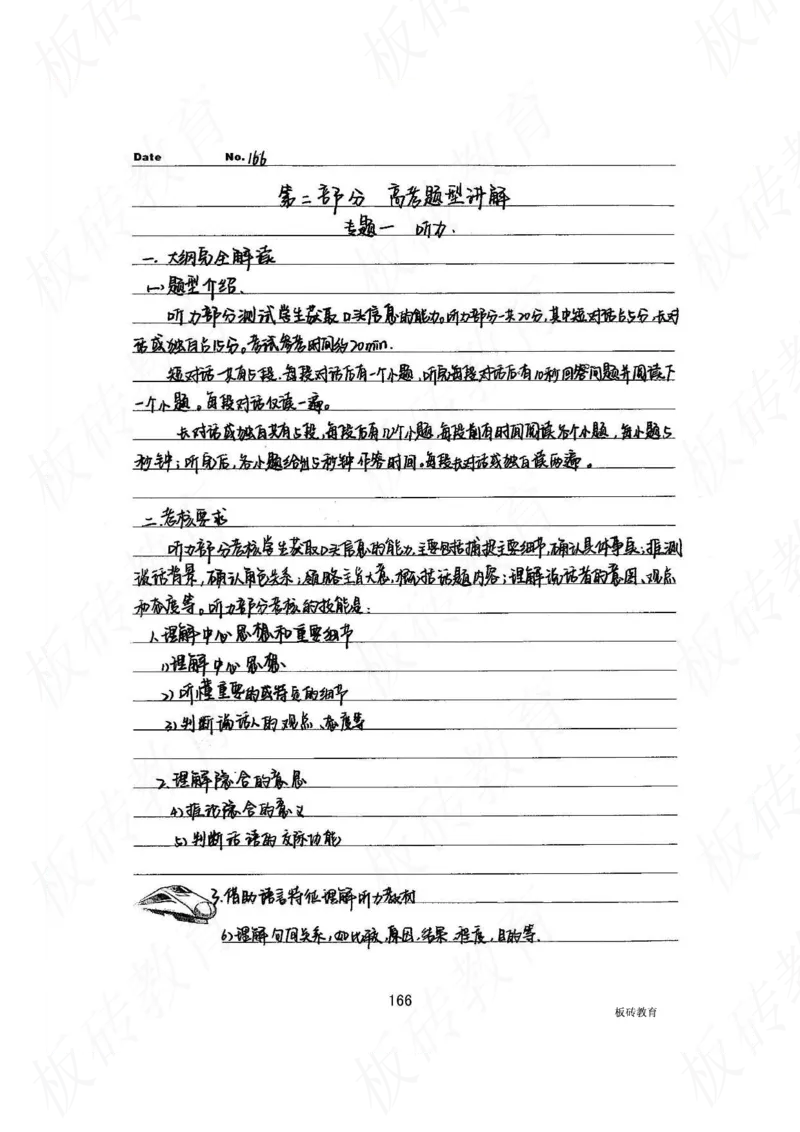 Date No. 166
第二部分 高考题型讲解
专题一 听力.
一. 大纲完全解读
(一)题型介绍、
听力部分测试学生获取口头信息的能力。听力部分一共20分,其中短对话占5分,长对
话或独白占15分。考试参考时间约20min.
短对话一共有5段.每段对话后有一个小题,听完每段对话后有10秒回答问题并阅读下
一个小题。每段对话仅读一遍。
长对话或独白共有5段,每段后有几个小题,每段前有时间阅读各个小题,每小题5
秒钟;听完后,各小题给出5秒钟作答时间。每段长对话或独白读两遍。
二.考核要求
听力部分考核学生获取口头信息的能力,主要包括捕捉主要细节,确认具体事实;推测
谈话背景,确认角色关系;领略主旨大意,概括话题内容;理解说话者的意图、观点
和态度等。听力部分考核的技能是:
1.理解中心思想和重要细节
1)理解中心思想
2)听懂重要的或特定的细节
3)判断说话人的观点、态度等
2.理解隐含的意思
4)推论隐含的意义
5)判断话语的交际功能
3.借助语言特征理解听力教材
6)理解句间关系,如比较,原因,结果 程度,目的等.
166
板砖教育